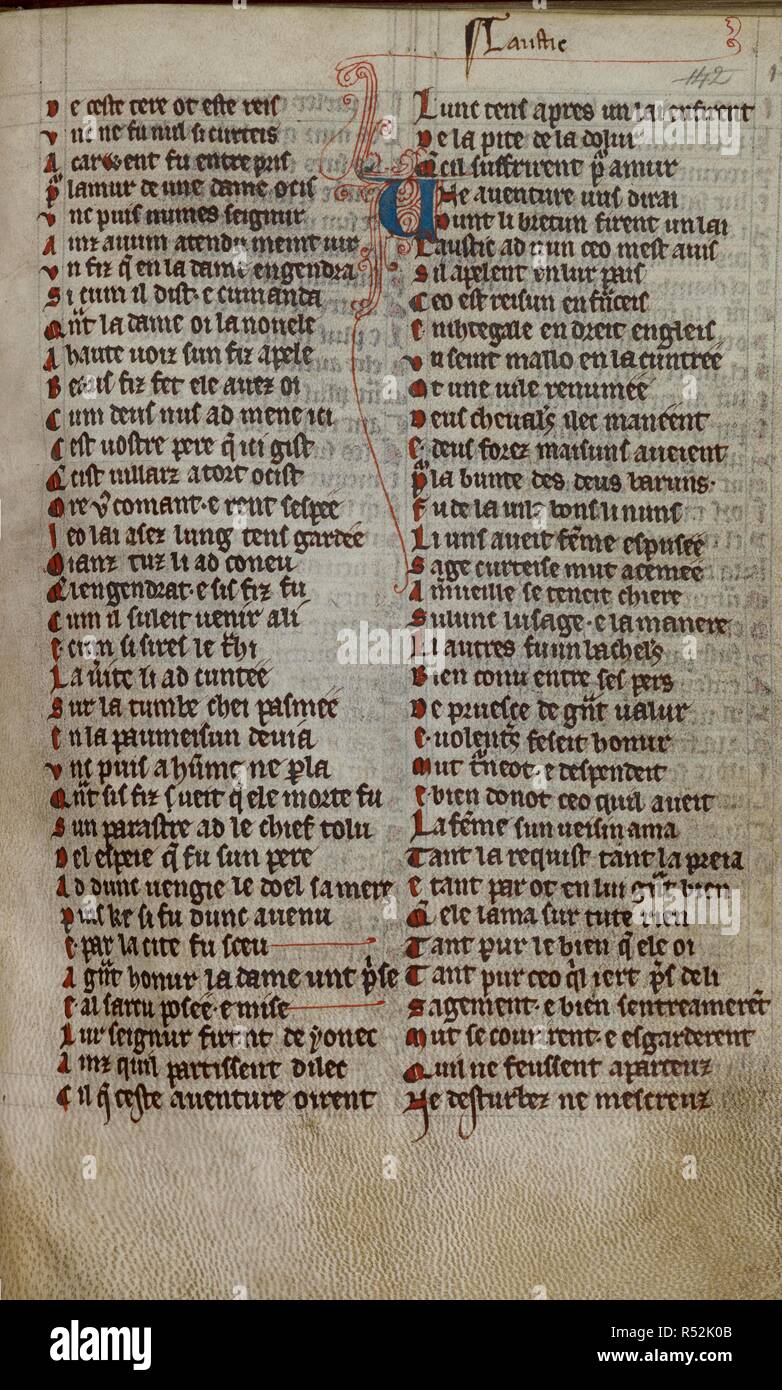 Laustic
142
De ceste tere ot este reis
Unc ne fu nul si curteis
A carwent fu entrepris
P lamur de une dame ocis
Unc puis numes seignur
Ainz auum atendu meint iur
Un fiz q̄ en la dame engendra
Si cum il dist e cumanda
Q̄nt la dame oi la nouele
A haute uoiz sun fiz apele
Beaus fiz fet ele auez oi
Cum deus nus ad mene ici
Cest uostre pere q̄ ici gist
Q̄ cist uillarz a tort ocist
Ore v᾽ comant e rent sespee
Jeo lai asez lung tens gardee
Oianz tuz li ad coneu
Q̄ lengendrat e sis fiz fu
Cum il suleit uenir a li
E cum si sires le t᾽hi
La u᾽ite li ad cuntee
Sur la tumbe chei pasmee
En la paumeisun deuia
Unc puis a hūme ne p̱la
Q̄nt sis fiz ueit q̄ ele morte fu
Sun parastre ad le chief tolu
Del espeie q̄ fu sun pere
Ad dunc uengie le doel sa mere
Puis ke si fu dunc auenu
E par la cite fu sceu
A g᾽nt honur la dame unt p᾽se
E al sarcu posee e mise
Lur seignur firent de yonec
Ainz quil partissent dilec
Cil q̄ ceste auenture oirent
Lunc tens apres un lai en firent
De la pite de la dolur
Q̄ cil suffrirent p amur
Une auenture uus dirai
Dunt li bretun firent un lai
Laustic ad nun ceo mest auis
Si lapelent en lur pais
Ceo est reisun en f᾽nceis
E nihtegale en dreit engleis
En seint mallo en la cuntree
Ot une uile renumee
Deus cheual᾽s ilec maneent
E deus forez maisuns aueient
P la bunte des deus baruns
Fu de la uile bons li nuns
Li uns aueit fēme espusee
Sage curteise mut acemee
A m᾽ueille se teneit chiere
Sulunc lusage e la manere
Li autres fu un bachel᾽s
Bien conu entre ses pers
De pruesce de g᾽nt ualur
E uolent᾽s feseit honur
Mut t᾽neot e despendeit
E bien donot ceo quil aueit
La fēme sun ueisin ama
Tant la requist tant la preia
E tant par ot en lui g᾽nt bien
Q̄ ele lama sur tute rien
Tant pur le bien q̄ ele oi
Tant pur ceo q᾽l iert p᾽s de li
Sagement e bien sentreamerēt
Mut se couurirent e esgarderent
Quil ne feussent aparceuz
Ne desturbez ne mescreuz
alamy
alamy
Image ID: R52K0B
www.alamy.com